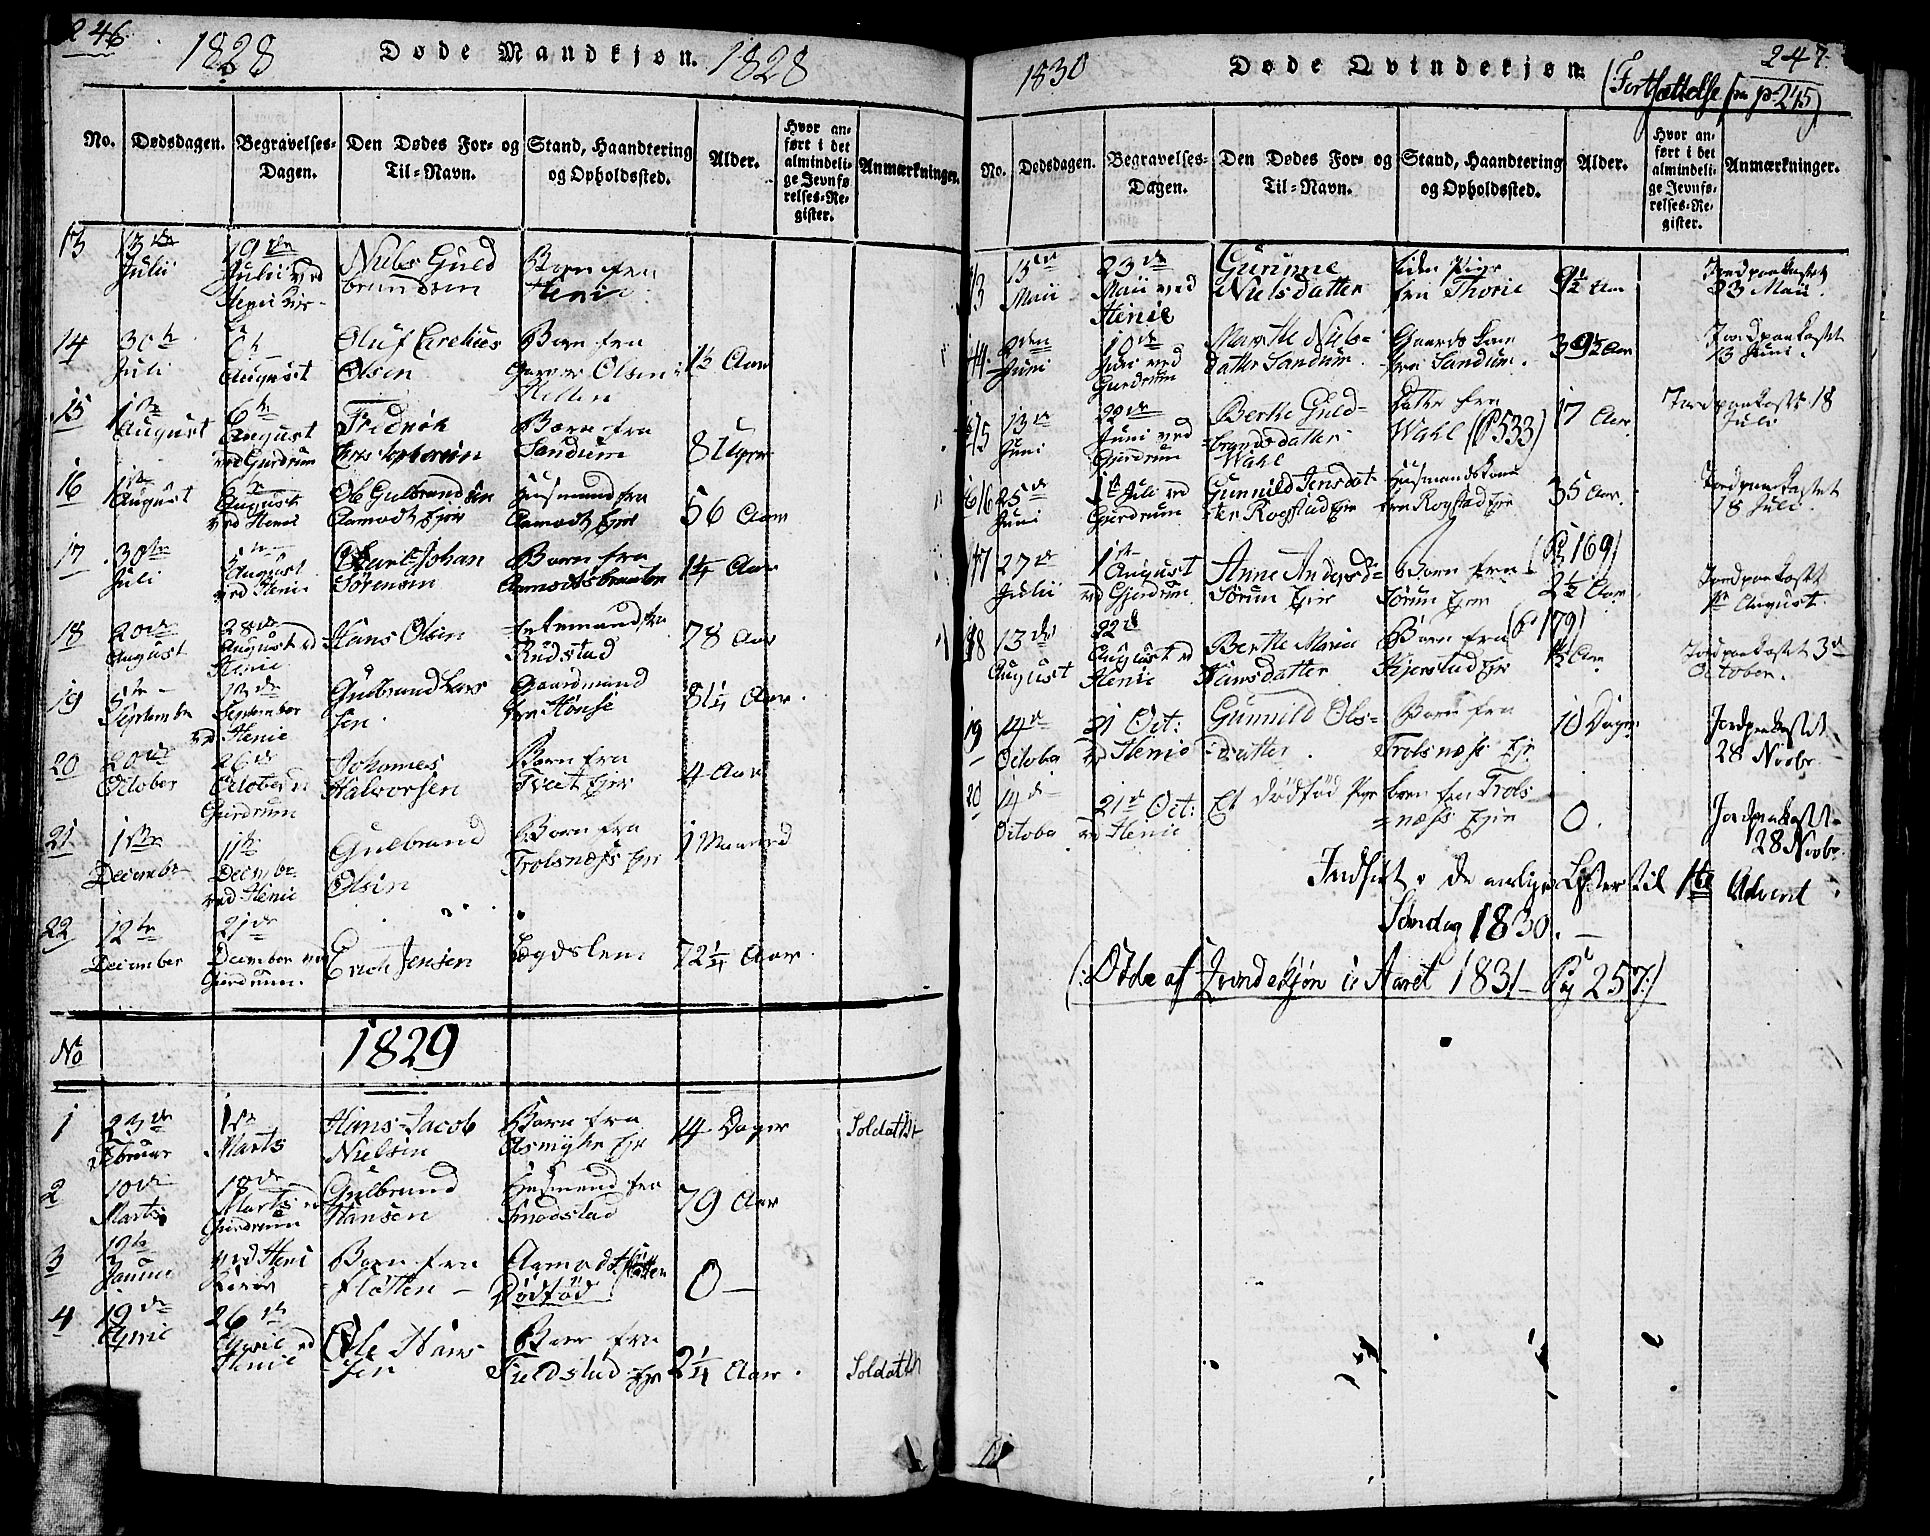 246.
1828 Døde Mandkjøn. 1828
No. Dødsdagen. Begravelses-Dagen. Den Dødes For- og Til-Navn. Stand, Haandtering og Opholdssted. Alder. Hvor anført i det almindelige Jevnførelses-Register. Anmærkninger.
13 13de Julii 19de Julii ved Niels Guldbrandsen Barn fra Henie
14 30te Juli August Oluf Olsen Barn fra Olsen 1½ Aar
15 1ste August 6te August ved Gjerdrum Fredrik Barn fra Sandum 8 Uger
16 1ste August August ved Henie Ole Gulbrandsen Aamodt Ejer Huusmand fra Aamodt Ejer 56 Aar
17 30te Juli 5te August ved Henie Carl Johan Sörensen Barn fra 1¼ Aar
18 20de August 28de August ved Henie Hans Olsen fra Rudstad 78 Aar
19 5te September 12de September ved Henie Gulbrand Larssen Gaardmand fra Hönse 81¼ Aar.
20 20de October 26de October ved Gjerdrum Johannes Halvorsen Barn fra Tveit Ejer 4 Aar
21 1ste December 11te Decembr. ved Henie Gulbrand Olsen Barn fra Trolsnæss Ejer 1 Maaned
22 12te December 21de December ved Gjerdrum. Erich Jensen Lægdslem 72¼ Aar.
No 1829
1 23de Februar 1ste Marts Hans Jacob Nielsen Barn fra Asmyhr Ejr 14 Dager Soldat
2 10de Marts 18de Marts ved Gjerdrum Gulbrand Hansen Huusmand fra Smedstad 79 Aar
3 12te Januar ved Henie Barn fra Fløtten – Aamodt Dødfød 0 –
4 19de April 26de April ved Henie Ole Hanssen Barn fra Fieldstad Ejr 2¼ Aar. Soldat
247.
1830 Døde Qvindekjøn. (Fortsættelse fra p. 245)
No. Dødsdagen. Begravelses-Dagen. Den Dødes For- og Til-Navn. Stand, Haandtering og Opholdssted. Alder. Hvor anført i det almindelige Jevnførelses-Register. Anmærkninger.
13 13de Maii 23de Maii ved Henie Gunime Nielsdatter liden Pige fra Thorie 9½ Aar Jordpaakastet 23 Maii.
14 Juni 10de Juni ved Gjerdrum Marthe Nielsdatter Sandum. Gaards Kone fra Sandum. 39½ Aar Jordpaakastet 13 Juni.
15 13de Juni 20de Juni ved Gjerdrum Berthe Guldbrandsdatter Wahl Datter fra Wahl (P 533) 17 Aar Jordpaakastet 18 Juli
16 25de Juni 1ste Juli ved Gjerdrum Gunnild Jensdatter Rogstad Ejr Huusmandskone fra Rogstad Ejr 35 Aar. Jordpaakastet 18 Juli.
17 27de Julii 1ste August ved Gjerdrum Anne Andersd= Sörum Ejer Barn fra Sörum Ejer (P 169) 2½ Aar Jordpaakastet 1ste August.
18 13de August 22de August ved Henie Berthe Maria Hansdatter Barn fra Kjerstad Ejr (P 179) 1½ Aar Jordpaakastet 3de October.
19 14de October 21 Oct: ved Henie Gunnild Olsdatter Barn fra Trolsnæss Ejr 10 Dage. Jordpaakastet 28 Novbr.
20 14de October 21de Oct: ved Henie Et dødfød Pigebarn fra Trolsnæss Ejer 0. Jordpaakastet 28 Novbr.
Indført i de aarlige Lister til 1ste Advent
Søndag 1830. –
(: Døde af Qvindekjøn i Aaret 1831 – Pag 257:)